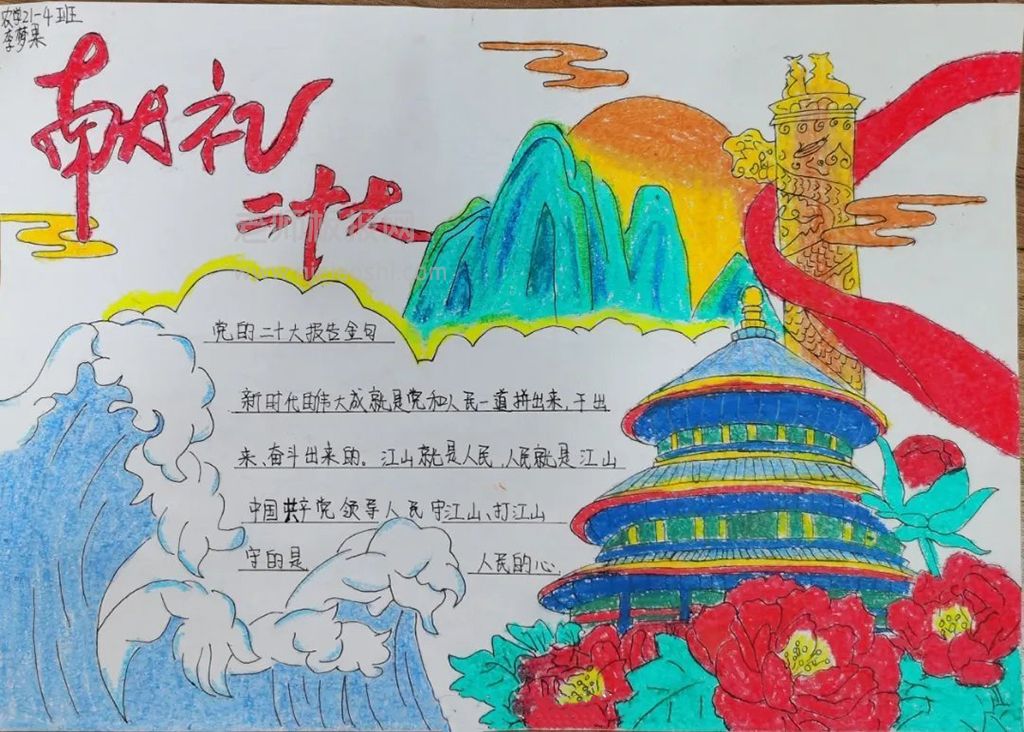 农学21-4班
李梦果
献礼
二十大
老师板报网
党的二十大报告金句
新时代的伟大成就是党和人民一道拼出来,干出
来、奋斗出来的。江山就是人民,人民就是江山
中国共产党领导人民守江山、打江山
守的是 人民的心.